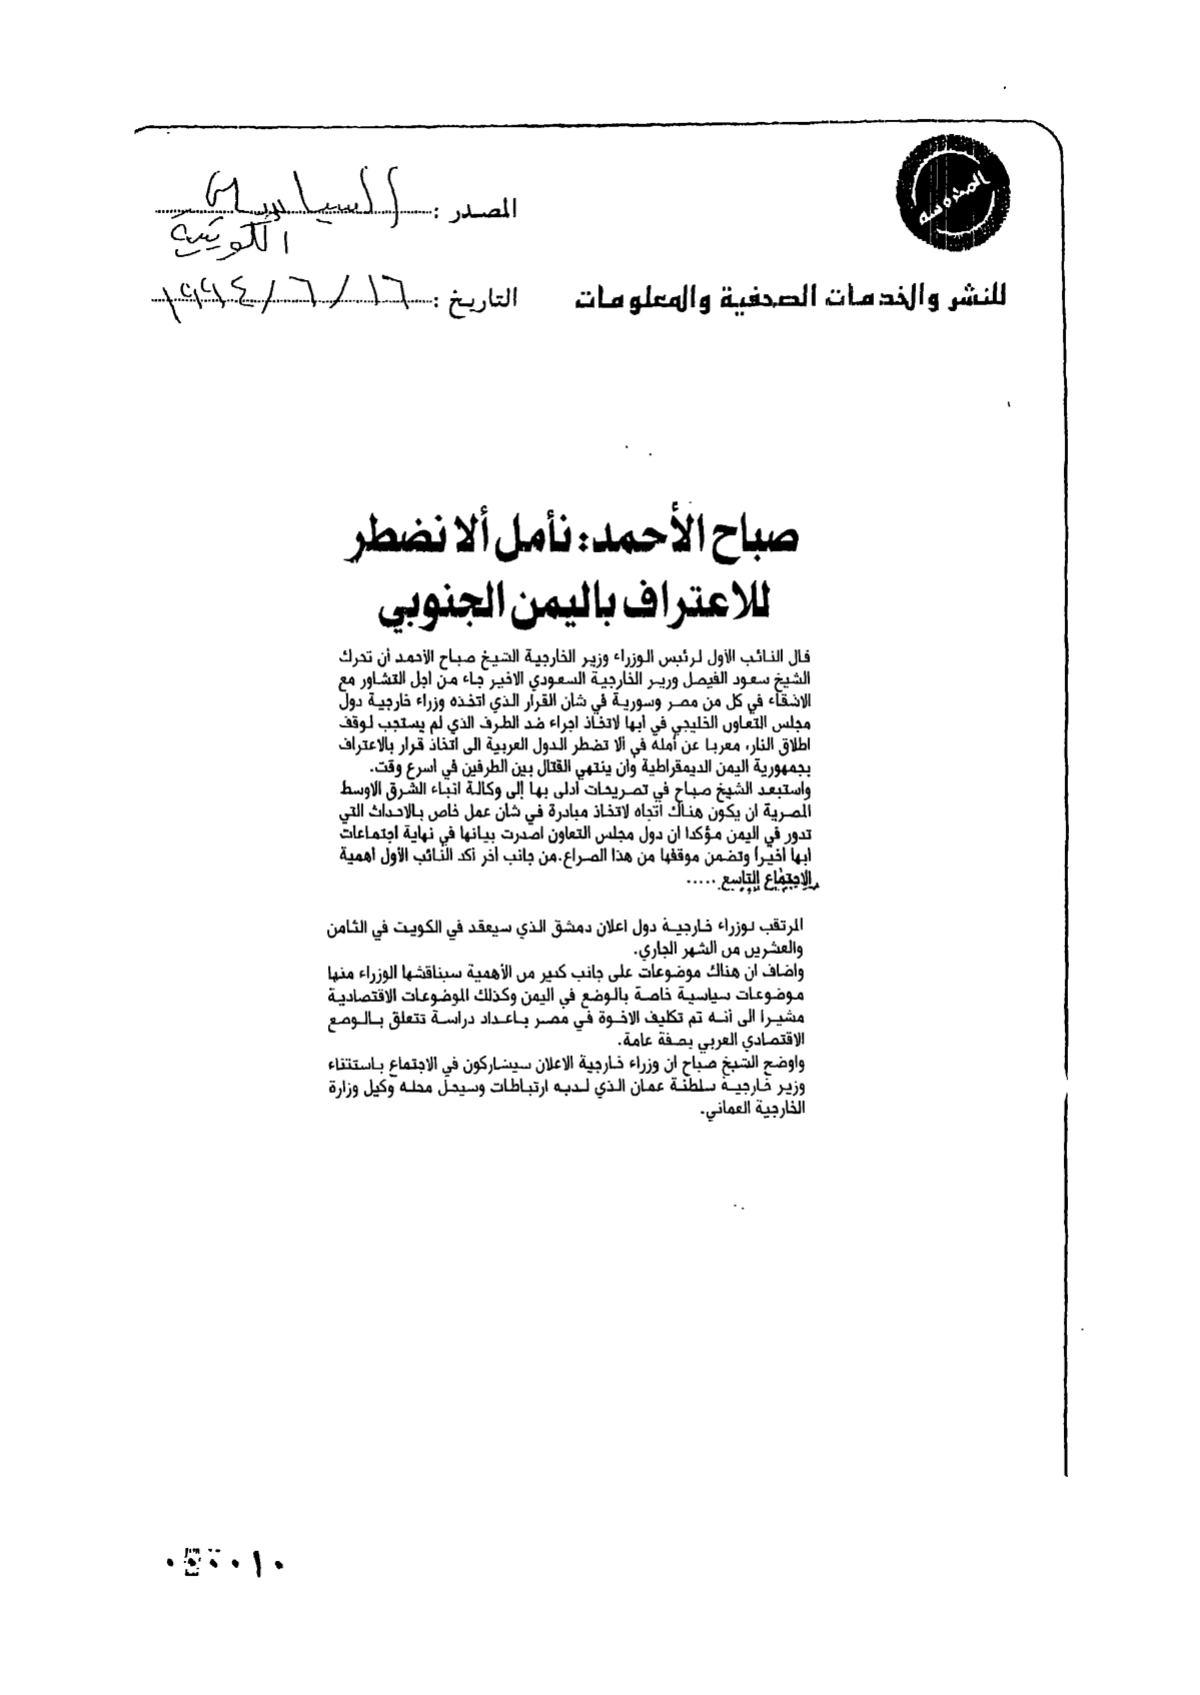 المحروسة
المصدر : السياسة
الكويتية
للنشر والخدمات الصحفية والمعلومات
التاريخ : ١٦/٦/١٩٩٤
صباح الأحمد: نأمل ألا نضطر
للاعتراف باليمن الجنوبي
قال النائب الأول لرئيس الوزراء وزير الخارجية الشيخ صباح الأحمد أن تحرك
الشيخ سعود الفيصل وزير الخارجية السعودي الاخير جاء من اجل التشاور مع
الاشقاء في كل من مصر وسورية في شان القرار الذي اتخذه وزراء خارجية دول
مجلس التعاون الخليجي في ابها لاتخاذ اجراء ضد الطرف الذي لم يستجب لوقف
اطلاق النار، معربا عن أمله في ألا تضطر الدول العربية الى اتخاذ قرار بالاعتراف
بجمهورية اليمن الديمقراطية وان ينتهي القتال بين الطرفين في اسرع وقت.
واستبعد الشيخ صباح في تصريحات أدلى بها إلى وكالة انباء الشرق الاوسط
المصرية ان يكون هناك اتجاه لاتخاذ مبادرة في شان عمل خاص بالاحداث التي
تدور في اليمن مؤكدا ان دول مجلس التعاون اصدرت بيانها في نهاية اجتماعات
ابها اخيراً وتضمن موقفها من هذا الصراع.من جانب اخر أكد النائب الأول اهمية
الاجتماع التاسع .....
المرتقب لوزراء خارجية دول اعلان دمشق الذي سيعقد في الكويت في الثامن
والعشرين من الشهر الجاري.
واضاف ان هناك موضوعات على جانب كبير من الأهمية سيناقشها الوزراء منها
موضوعات سياسية خاصة بالوضع في اليمن وكذلك الموضوعات الاقتصادية
مشيرا الى أنه تم تكليف الاخوة في مصر باعداد دراسة تتعلق بالوضع
الاقتصادي العربي بصفة عامة.
واوضح الشيخ صباح ان وزراء خارجية الاعلان سيشاركون في الاجتماع باستثناء
وزير خارجية سلطنة عمان الذي لديه ارتباطات وسيحل محله وكيل وزارة
الخارجية العماني.